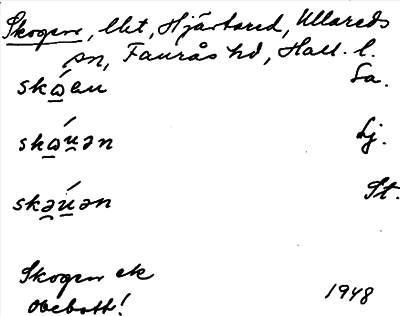 Skogen, lht, Hjärtared, Ullareds
sn, Faurås hd, Hall. l.
skǫ́en Sa.
skǫ́u̱ən Lj.
skə̱ú̱ən St.
Skogen ek
obebott! 1948